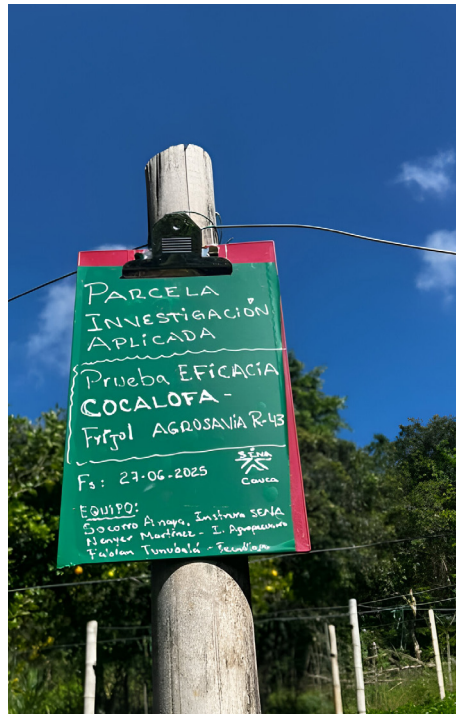 PARCELA
INVESTIGACIÓN
APLICADA
Prueba EFICACIA
COCALOFA -
Frijol AGROSAVIA R-43
Fs: 27-06-2025
SENA
Cauca
EQUIPO:
Socorro Anaya, Instrura SENA
Nenyer Martínez - I. Agropecuario
Fabian Tunubalá -